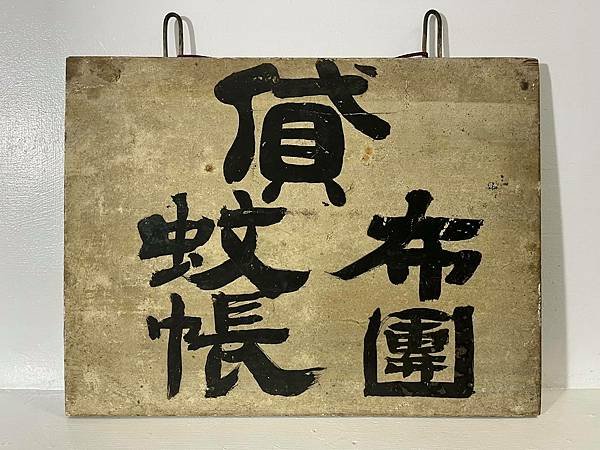 貸
布團
蚊帳